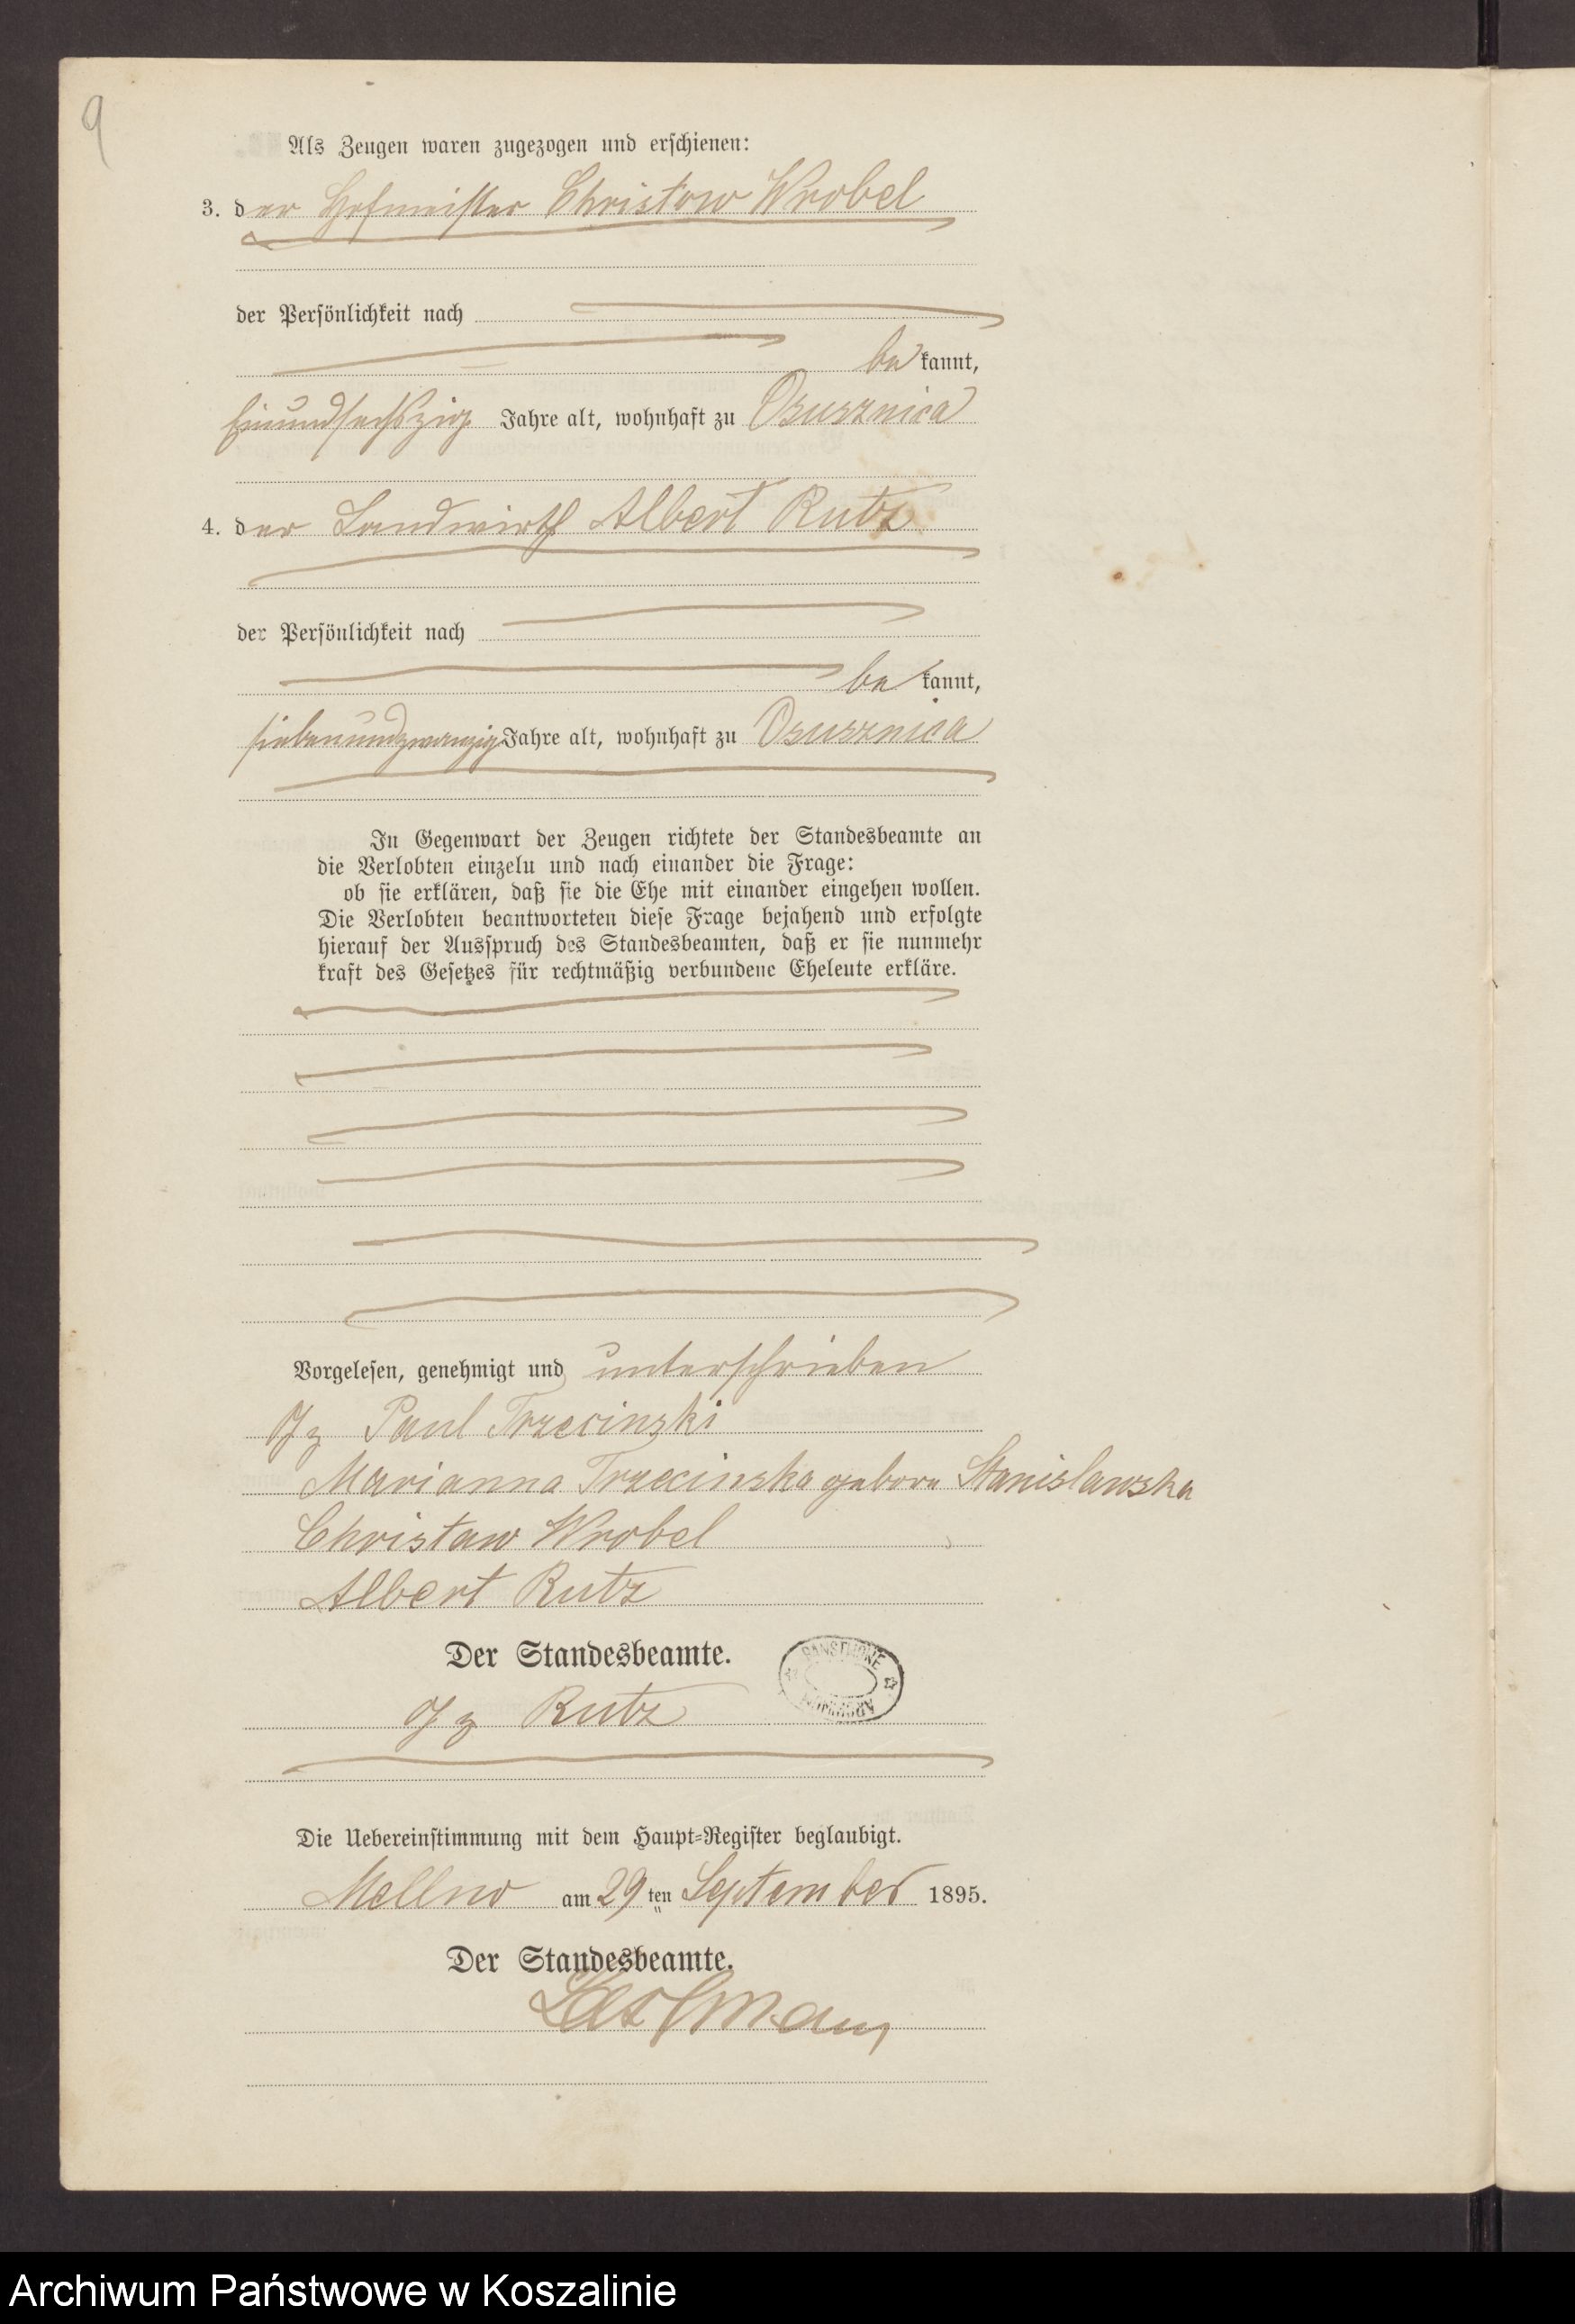 9
Als Zeugen waren zugezogen und erschienen:
3. der Hofmeister Christow Wrobel
der Persönlichkeit nach
be kannt,
Einundsechszig Jahre alt, wohnhaft zu Osusznica
4. der Landwirth Albert Rutz
der Persönlichkeit nach
be kannt,
siebenundzwanzig Jahre alt, wohnhaft zu Osusznica
In Gegenwart der Zeugen richtete der Standesbeamte an
die Verlobten einzeln und nach einander die Frage:
ob sie erklären, daß sie die Ehe mit einander eingehen wollen.
Die Verlobten beantworteten diese Frage bejahend und erfolgte
hierauf der Ausspruch des Standesbeamten, daß er sie nunmehr
kraft des Gesetzes für rechtmäßig verbundene Eheleute erkläre.
Vorgelesen, genehmigt und unterschrieben
Gz Paul Trzecinski
Marianna Trzecinska geborn Stanislawska
Christaw Wrobel
Albert Rutz
Der Standesbeamte.
Gz Rutz
Die Uebereinstimmung mit dem Haupt-Register beglaubigt.
Mellno am 29 ten September 1895.
Der Standesbeamte.
Archiwum Państwowe w Koszalinie